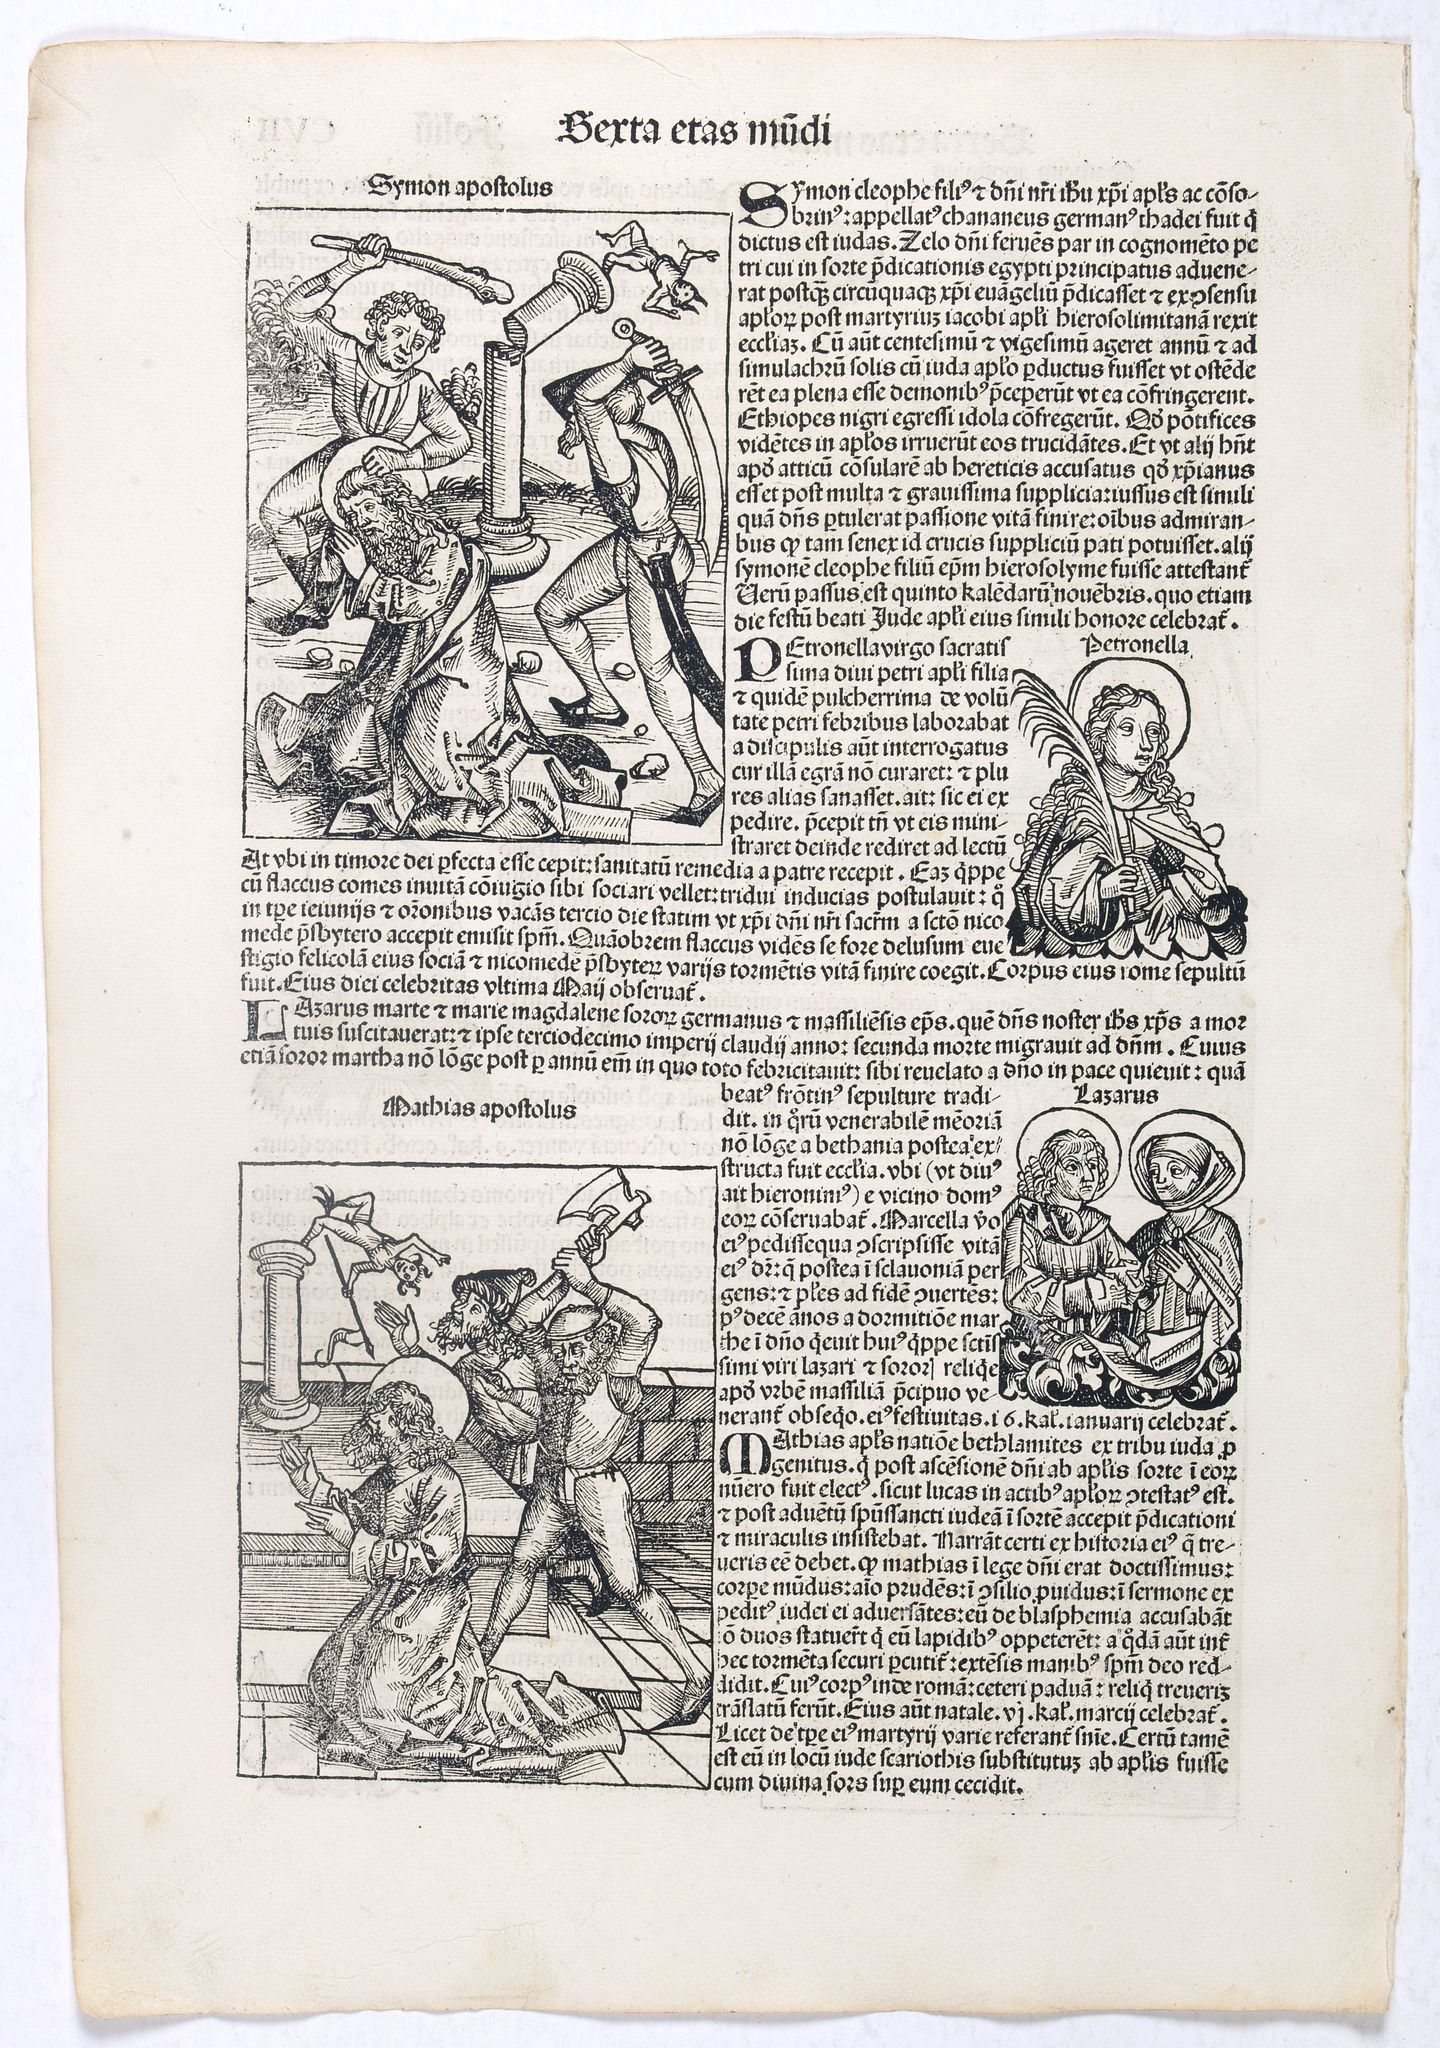 Sexta etas mūdi
Symon apostolus
SYmon cleophe filiꝰ ⁊ dn̄i nr̄i ihū xp̄i apl̄s ac cōso-
brinꝰ: appellatꝰ chananeus germanꝰ thadei fuit q̄
dictus est iudas. Zelo dn̄i feruēs par in cognomēto pe
tri cui in sorte p̄dicationis egypti principatus aduene-
rat postq̄ꝫ circūquaqꝫ xp̄i euāgeliū p̄dicasset ⁊ ex ꝯsensu
apl̄oꝝ post martyriuꝫ iacobi apl̄i hierosolimitanā rexit
eccl̄iaꝫ. Cū aūt centesimū ⁊ vigesimū ageret annū ⁊ ad
simulachrū solis cū iuda apl̄o ꝑductus fuisset vt ostēde
rēt ea plena esse demonibꝰ p̄ceperūt vt ea cōfringerent.
Ethiopes nigri egressi idola cōfregerūt. Qd̄ pōtifices
vidētes in apl̄os irruerūt eos trucidātes. Et vt alij hn̄t
apd̄ atticū cōsularē ab hereticis accusatus qd̄ xp̄ianus
esset post multa ⁊ grauissima supplicia: iussus est simili
quā dn̄s ꝑtulerat passione vitā finire: oībus admiran-
bus ꝙ tam senex id crucis suppliciū pati potuisset. alij
symonē cleophe filiū ep̄m hierosolyme fuisse attestant̄
Uerū passus est quinto kalēdarū nouēbris. quo etiam
die festū beati Jude apl̄i eius simili honore celebrat̄.
Petronella
PEtronella virgo sacratis
sima diui petri apl̄i filia
⁊ quidē pulcherrima de volū
tate petri febribus laborabat
a discipulis aūt interrogatus
cur illā egrā nō curaret: ⁊ plu
res alias sanasset. ait: sic ei ex
pedire. p̄cepit tn̄ vt eis mini-
straret deinde rediret ad lectū
At vbi in timore dei ꝑfecta esse cepit: sanitatū remedia a patre recepit. Eaꝫ q̄ppe
cū flaccus comes inuitā cōiugio sibi sociari vellet: tridui inducias postulauit: q̄
in tꝑe ieiunijs ⁊ or̄onibus vacās tercio die statim vt xp̄i dn̄i nr̄i sacr̄m a sctō nico
mede p̄sbytero accepit emisit sp̄m. Quāobrem flaccus vidēs se fore delusum eue
stigio felicolā eius sociā ⁊ nicomedē p̄sbyteꝝ varijs tormētis vitā finire coegit. Corpus eius rome sepultū
fuit. Eius diei celebritas vltima Maij obseruat̄.
LAzarus marte ⁊ marie magdalene soroꝝ germanus ⁊ massiliēsis ep̄s. quē dn̄s noster ih̄s xp̄s a mor
tuis suscitauerat: ⁊ ipse terciodecimo imperij claudij anno: secunda morte migrauit ad dn̄m. Cuius
etiā soror martha nō lōge post ꝑ annū em̄ in quo toto febricitauit: sibi reuelato a dn̄o in pace quieuit: quā
Lazarus
beatꝰ frōtinꝰ sepulture tradi-
dit. in q̄rū venerabilē mēoriā
nō lōge a bethania postea ex-
structa fuit eccl̄ia. vbi (vt diuꝰ
ait hieronimꝰ) e vicino domꝰ
eoꝝ cōseruabat̄. Marcella v̄o
eiꝰ pedissequa ꝯscripsisse vitā
eiꝰ dr̄: q̄ postea ī sclauoniā per
gens: ⁊ pl̄es ad fidē ꝯuertēs:
pꝰ decē ānos a dormitiōe mar
the ī dn̄o q̄euit huiꝰ q̄ppe sctīs
simi viri lazari ⁊ sororꝭ reliq̄e
apd̄ vrbē massiliā p̄cipuo ve-
nerant̄ obseq̄o. eiꝰ festiuitas. 16. kal̄. ianuarij celebrat̄.
Mathias apostolus
MAthias apl̄s natiōe bethlamites ex tribu iuda ꝓ
genitus. q̄ post ascēsionē dn̄i ab apl̄is sorte ī eoꝝ
nūero fuit electꝰ. sicut lucas in actibꝰ apl̄oꝝ ꝯtestatꝰ est.
⁊ post aduētū sp̄ussancti iudeā ī sortē accepit p̄dicationi
⁊ miraculis insistebat. Narrāt certi ex historia eiꝰ q̄ tre-
ueris eē debet. ꝙ mathias ī lege dn̄i erat doctissimus:
corꝑe mūdus: aīo prudēs: ī ꝯsilio ꝓuidus: ī sermone ex
peditꝰ iudei ei aduersātes: eū de blasphemia accusabāt
ō duos statuer̄t q̄ eū lapidibꝰ oppeterēt: a q̄dā aūt int̄
hec tormēta securi ꝑcutit̄: extēsis manibꝰ sp̄m deo red-
didit. Cuiꝰ corpꝰ inde romā: ceteri paduā: reliq̄ treueriꝫ
trāslatū ferūt. Eius aūt natale. vj. kal̄. marcij celebrat̄.
Licet de tꝑe eiꝰ martyrij varie referant̄ sn̄ie. Certū tamē
est eū in locū iude scariothis substitutuꝫ ab apl̄is fuisse
cum diuina sors suꝑ eum cecidit.